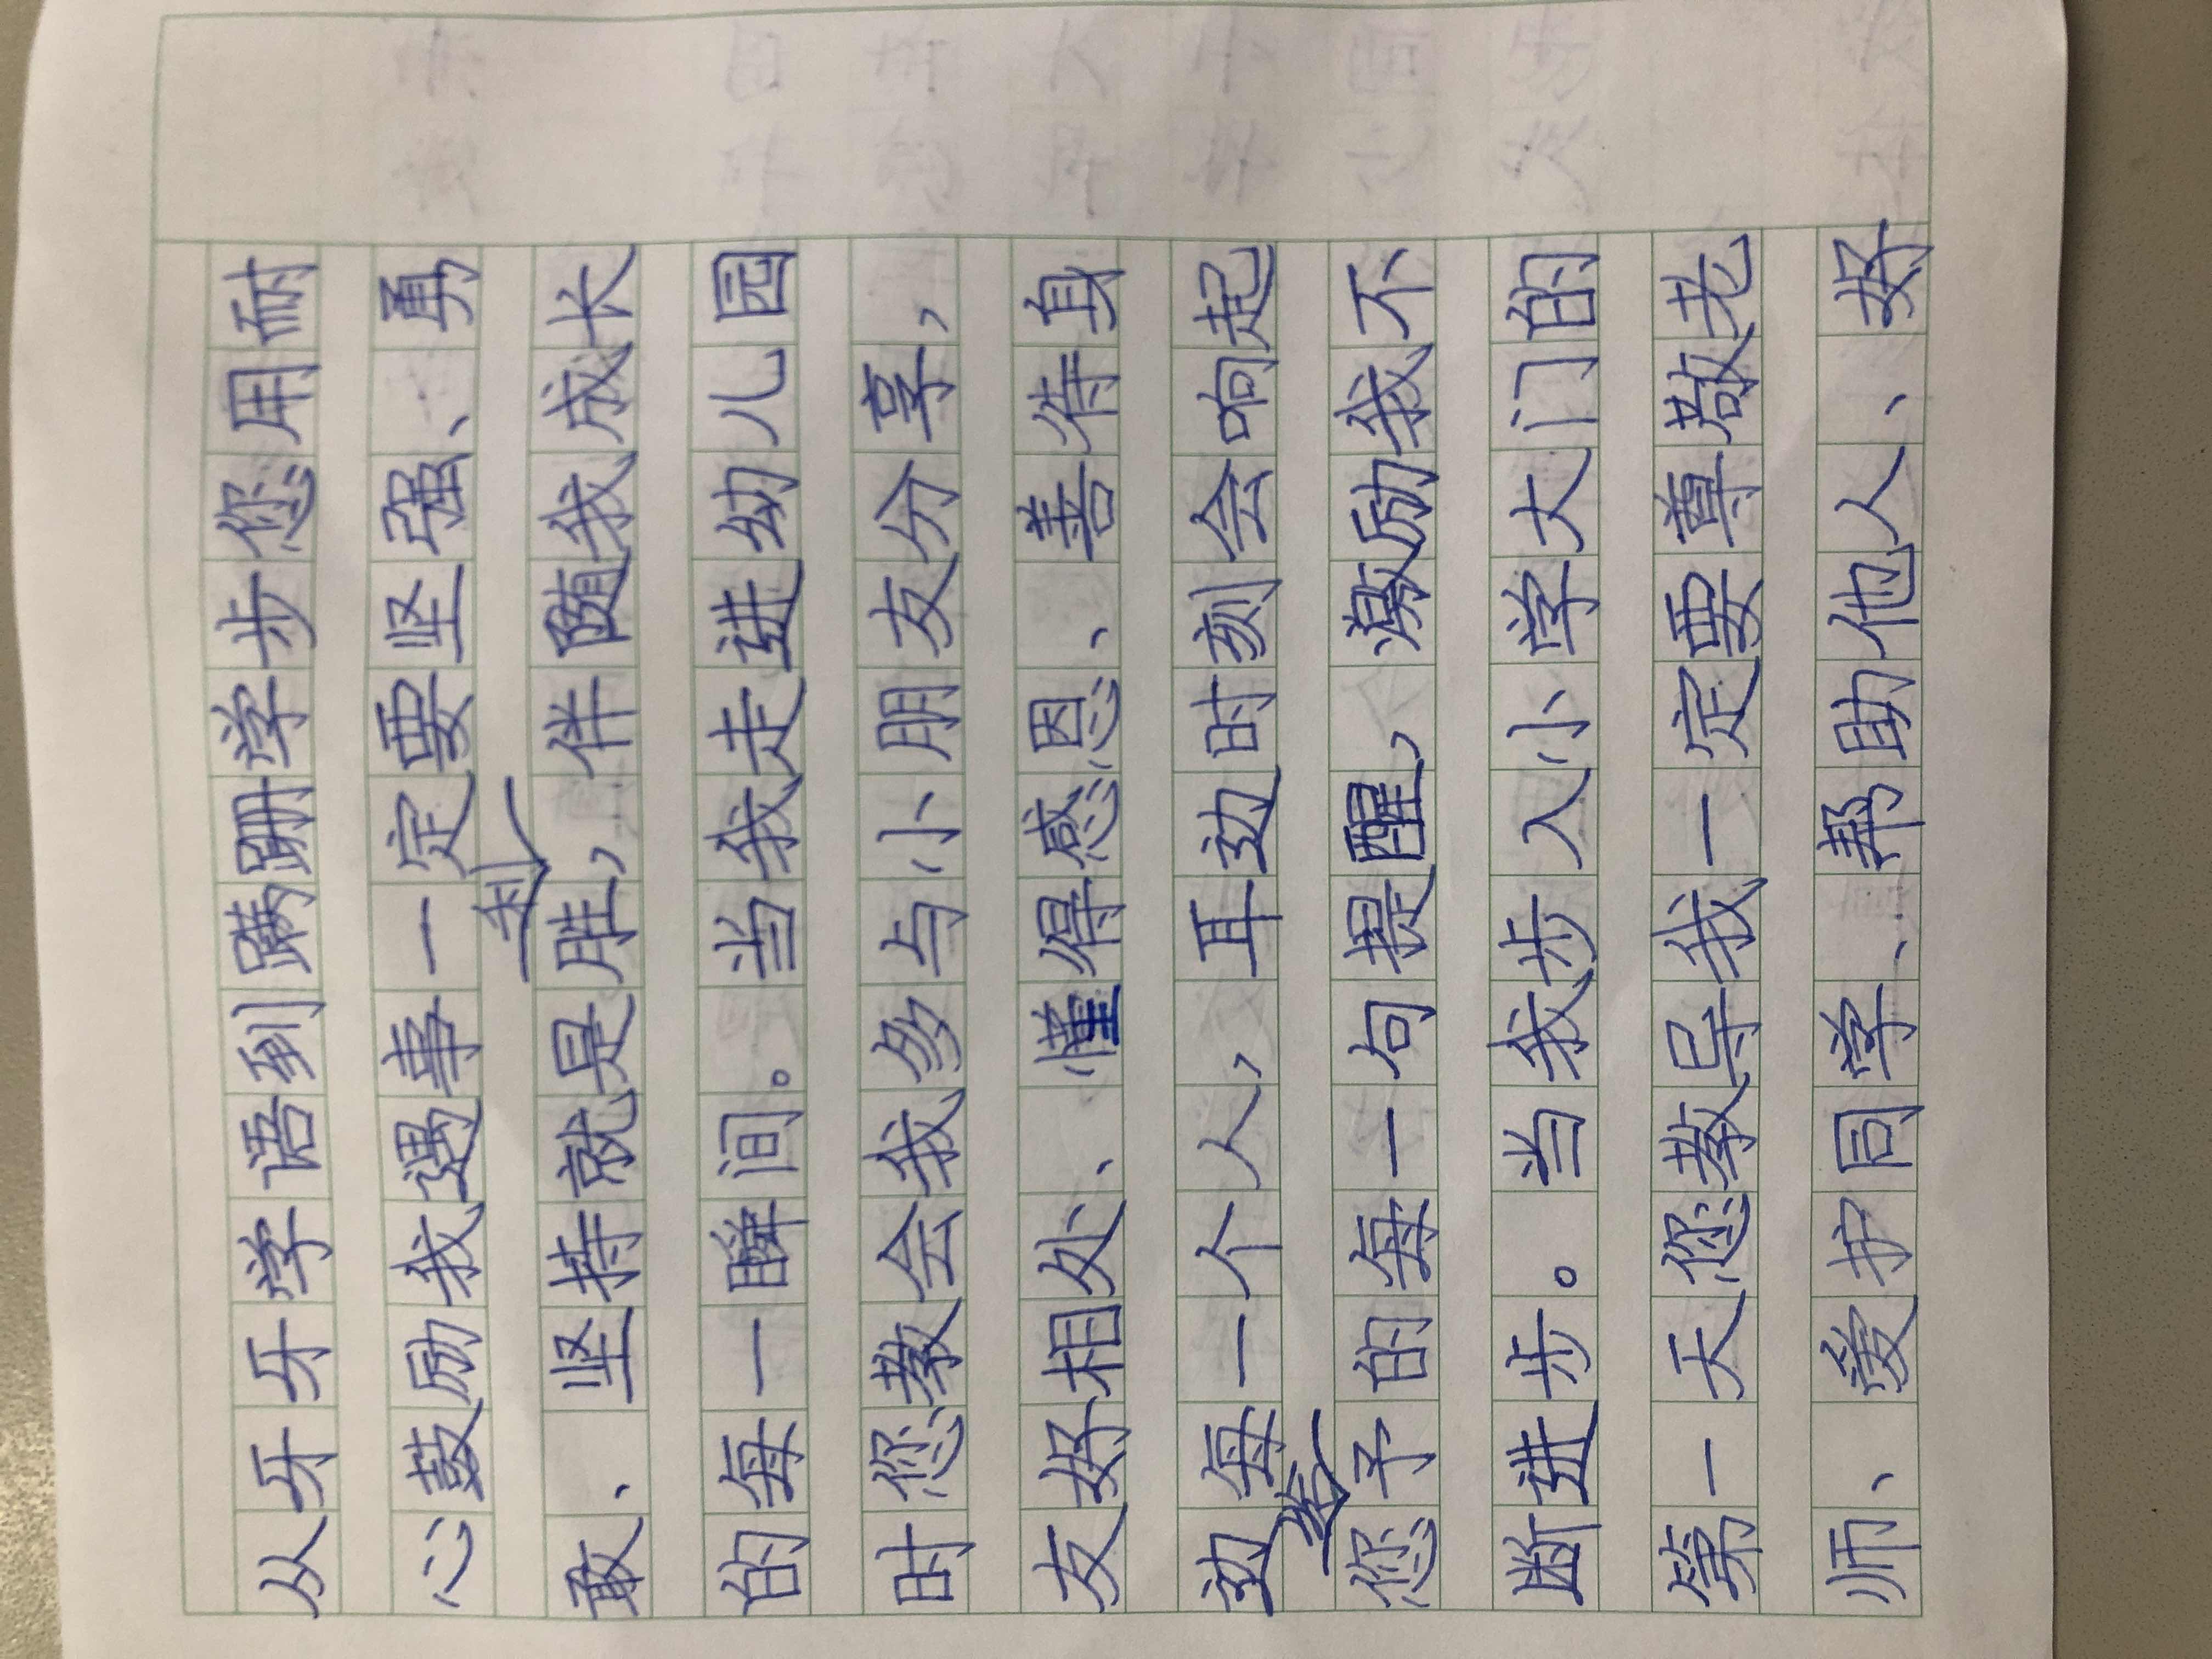 从牙牙学语到蹒跚学步您用耐
心鼓励我遇事一定要坚强、勇
敢、坚持就是胜利，伴随我成长
的每一瞬间。当我走进幼儿园
时您教会我多与小朋友分享，
友好相处、懂得感恩、善待身
边每一个人，耳边时刻会响起
您给予的每一句提醒，激励我不
断进步。当我步入小学大门的
第一天您教导我一定要尊敬老
师、爱护同学、帮助他人、好